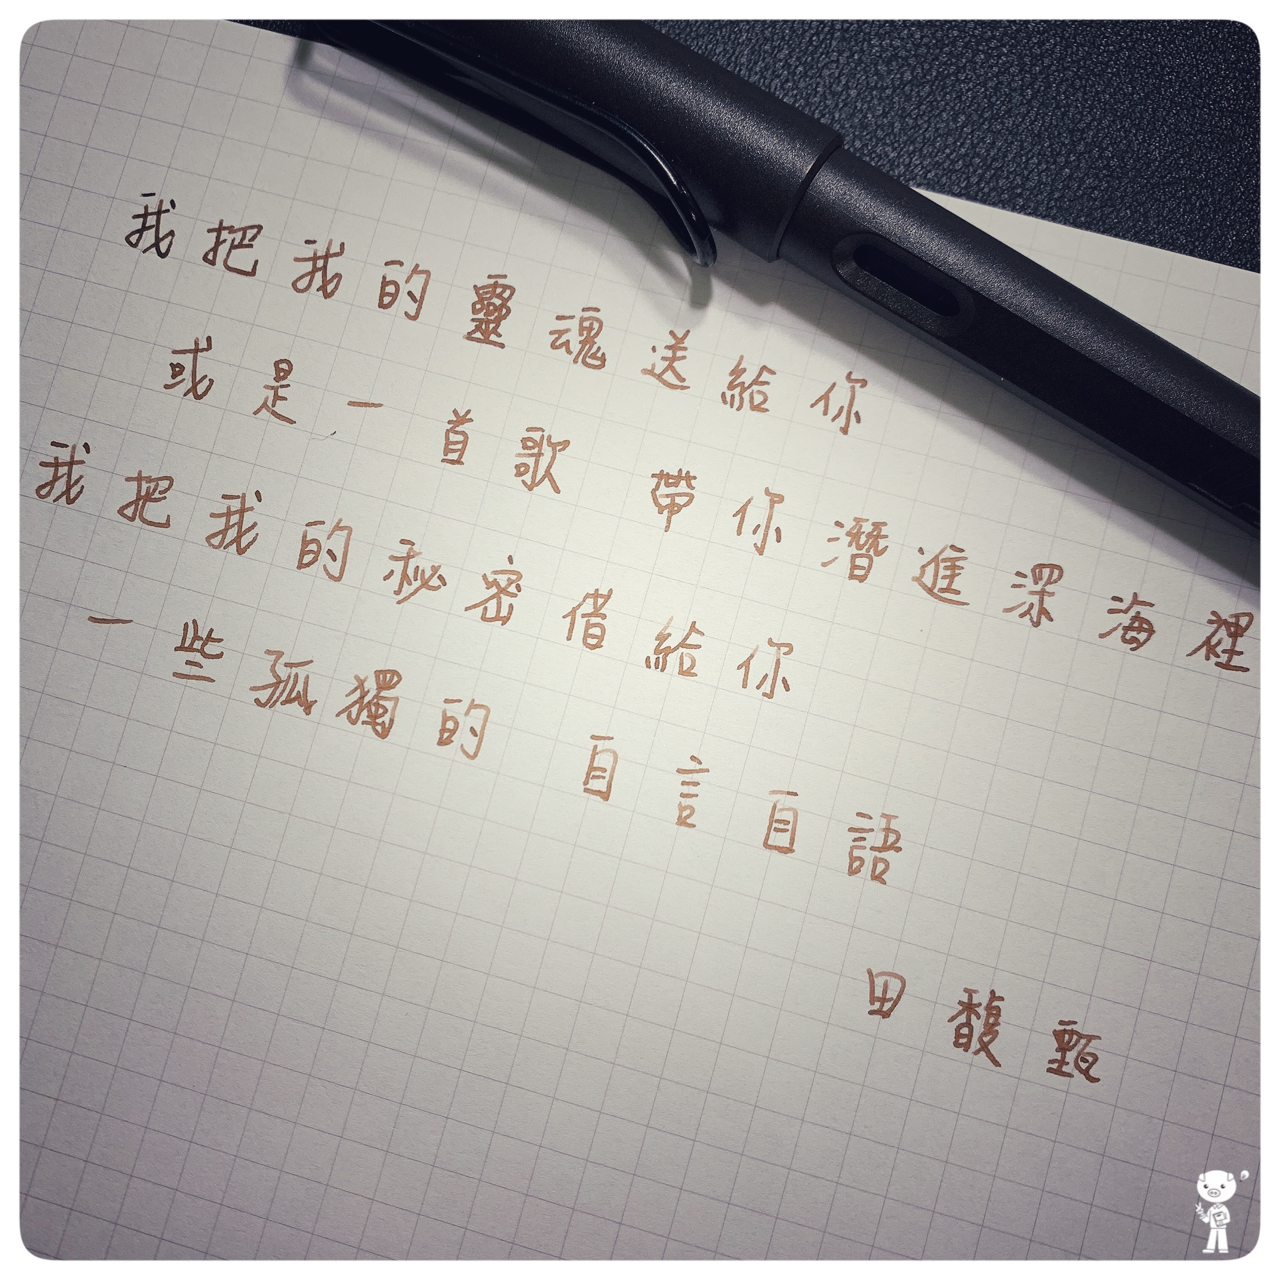 我把我的靈魂送給你
或是一首歌 帶你潛進深海裡
我把我的秘密借給你
一些孤獨的 自言自語
田馥甄